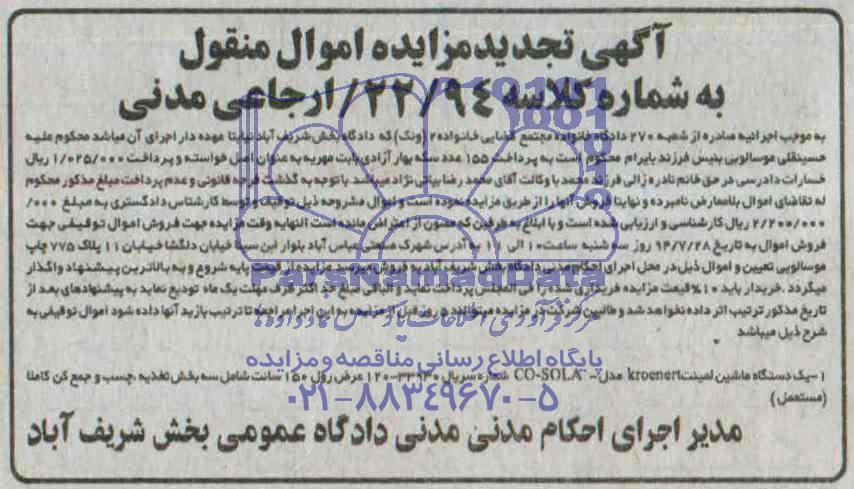 آگهی تجدید مزایده اموال منقول
به شماره کلاسه ۲۲/۹۴/ارجاعی مدنی
به موجب اجرائیه صادره از شعبه ۲۷۰ دادگاه خانواده مجتمع قضایی خانواده ۲ (ونک) که دادگاه بخش شریف آباد نیابتا عهده دار اجرای آن میباشد محکوم علیه
حسینقلی موسالویی بنیس فرزند بایرام محکوم است به پرداخت ۱۵۵ عدد سکه بهار آزادی بابت مهریه به عنوان اصل خواسته و پرداخت ۱/۰۲۵/۰۰۰ ریال
خسارات دادرسی در حق خانم نادره زالی فرزند محمد با وکالت آقای محمد رضا بیاتی نژاد میباشد. با توجه به گذشت فرجه قانونی و عدم پرداخت مبلغ مذکور محکوم
له تقاضای اموال بلامعارض نامبرده و نهایتا فروش آنها را از طریق مزایده نموده است و اموال مشروحه ذیل توقیف و توسط کارشناس دادگستری به مبلغ ۰۰۰/
۲/۲۰۰/۰۰۰ ریال کارشناسی و ارزیابی شده است و با ابلاغ به طرفین که مصون از اعتراض مانده است النهایه وقت مزایده جهت فروش اموال توقیفی جهت
فروش اموال به تاریخ ۹۴/۷/۲۸ روز سه شنبه ساعت ۱۰ الی ۱۱ به آدرس شهرک صنعتی عباس آباد بلوار ابن سینا خیابان دلگشا خیابان ۱۱ پلاک ۷۷۵ چاپ
موسالویی تعیین و اموال ذیل در محل اجرای احکام مدنی دادگاه بخش شریف آباد به فروش میرسد مزایده از قیمت پایه شروع و به بالاترین پیشنهاد واگذار
میگردد. خریدار باید ۱۰٪ قیمت مزایده فی المجلس پرداخت نماید و الباقی مبلغ در اکثر ظرف مهلت یک ماه تودیع نماید به پیشنهادهای بعد از
تاریخ مذکور ترتیب اثر داده نخواهد شد و طالبین شرکت در مزایده میتوانند ۵ روز قبل از مزایده به این اجرا مراجعه تا ترتیب بازدید آنها داده شود اموال توقیفی به
شرح ذیل میباشد
ParsNamadData
پایگاه اطلاع رسانی مناقصه و مزایده
۱- یک دستگاه ماشین لمینت kroenert مدل CO-SOLA - شماره سریال ۳۳۹۳۰-۱۲۰ عرض رول ۱۵۰ سانت شامل سه بخش تغذیه، چسب و جمع کن کاملا
(مستعمل)
۰۲۱-۸۸۳۴۹۶۷۰-۵
مدیر اجرای احکام مدنی مدنی دادگاه عمومی بخش شریف آباد